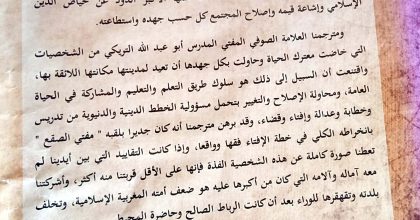 الإسلامي وإشاعة قيمه وإصلاح المجتمع كل حسب جهده واستطاعته.
ومترجمنا العلامة الصوفي المفتي المدرس أبو عبد الله التريكي من الشخصيات
التي خاضت معترك الحياة وحاولت بكل جهدها أن تعيد لمدينتها مكانتها اللائقة بها،
واقتنعت أن السبيل إلى ذلك هو سلوك طريق التعلم والتعليم والمشاركة في الحياة
العامة، ومحاولة الإصلاح والتغيير بتحمل مسؤولية الخطط الدينية والدنيوية من تدريس
وخطابة وعدالة وإفتاء وقضاء، وقد برهن مترجمنا أنه كان جديرا بلقبه " مفتي الصقع "
بانخراطه الكلي في خطة الإفتاء فقها وواقعا، وإذا كانت التقاييد التي بين أيدينا لم
تعطنا صورة كاملة عن هذه الشخصية الفذة فإنها على الأقل قربتنا منه أكثر، وأشركتنا
معه آماله وآلامه التي كان من أكبرها عليه هو ضعف أمته المغربية الإسلامية، وتخلف
بلدته وتقهقرها للوراء بعد أن كانت الرباط الصالح وحاضرة المحيط